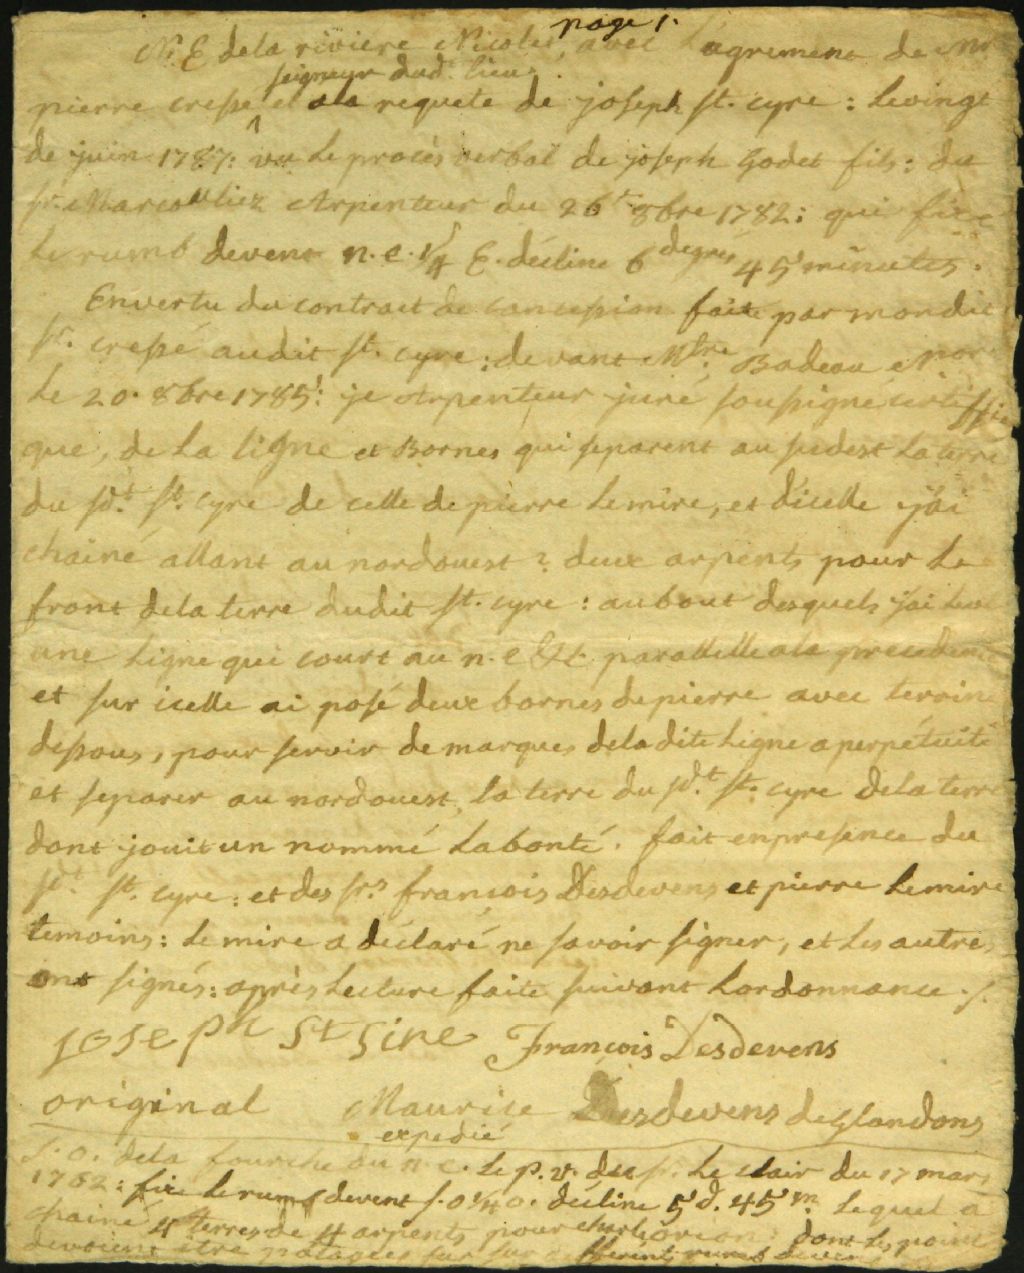 page 1.
N. E de la riviere Nicolet, avec l'agrement de mr
seigneur dud. lieu
pierre cressé et ala requete de joseph st. cyre : le vingt
de juin 1787: vu le procès verbal de joseph Godet fils: du
sr. Marcoulliez Arpenteur du 26e 8bre 1782: qui fixe
le rumb devent n. e. 1/4 E. décline 6 degrés 45 minutes.
En vertu du contract de concession faite par mondit
sr. cressé audit st. cyre: devant Mtre Badeau Nore
le 20. 8bre 1785: je Arpenteur juré soussigné certiffie
que, de la ligne et Bornes qui separent au sudest la terre
du sdt. st. cyre de celle de pierre Lemire, et d'icelle j'ai
chainé allant au nordouest : deux arpents pour le
front de la terre dudit st. cyre : au bout desquels j'ai
une ligne qui court au n. e &c parallelle ala precedente
et sur icelle ai posé deux bornes de pierre avec terrine
dessous, pour servir de marques de ladite ligne a perpétuité
et separer au nordouest, la terre du sdt. st. cyre de la terre
dont jouit un nommé Labonté. fait en presence du
sdt. st. cyre: et des srs francois Desdevens et pierre Lemire
temoins: Lemire a déclaré ne savoir signer, et les autres
ont signés: après lecture faite suivant Lordonnance ./.
Joseph St Sire François Desdevens
original Maurice Desdevens de Glandons
expedié
S. O. de la fourche du n. e. le p. v. du sr. Le clair du 17 mars
1762: fixe le rumb devent s. o 1/4 o. décline 5 d. 45 m. lequel a
chainé 4 terres de 4 arpents pour chorion: dont les
devoient être sur